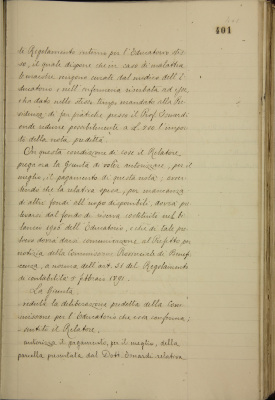 401
le Regolamento interno per l'Educatorio Es-
so, il quale dispone che in caso di malattia
le maestre vengono curate dal medico dell'E-
ducatorio, nell'infermeria
ha dato nello stesso tempo mandato alla Pre-
sidenza di far pratiche presso il Prof.
onde ridurre possibilmente a L. 300 l'impor-
to della nota predetta.
Con questa condizione di cose il Relatore,
prega ora la Giunta di voler autorizzare, per il
meglio, il pagamento di questa nota; avver-
tendo che la relativa spesa, per mancanza
di altri fondi all'uopo disponibili, dovrà pre-
levarsi dal fondo di riserva costituito nel bi-
lancio 1905 dell'Educatorio, e che di tale pre-
lievo dovrà darsi comunicazione al Prefetto per
notizia della Commissione Provinciale di Benefi-
cenza, a norma dell'art. 51 del Regolamento
di contabilità 5 febbraio 1891.
La Giunta
veduta la deliberazione predetta della Com-
missione per l'Educatorio che essa conferma;
sentito il Relatore,
autorizza il pagamento, per il meglio, della
parcella presentata dal Dott. relativa